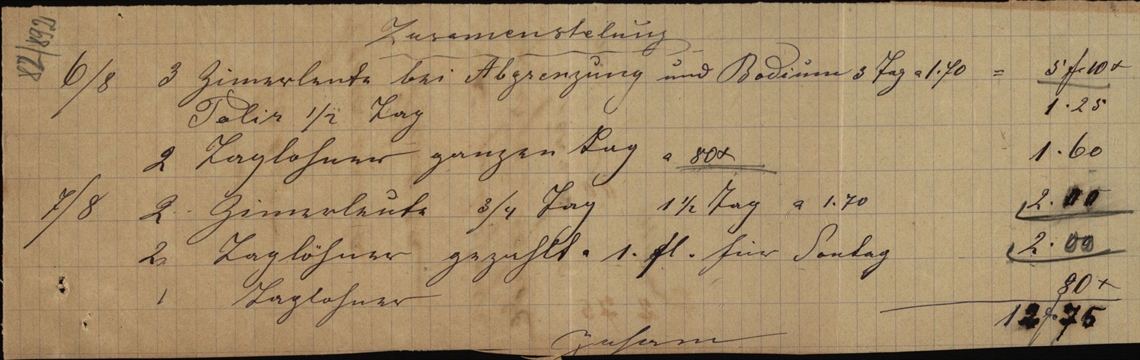 1268/28
Zusamenstelung
6/8 3 Zimerleute bei Abgrenzung und Bodium 3 Tag a 1.70 = 5 fr 10 x
Polir 1/2 Tag 1.25
2 Taglohner ganzen Tag a 80x 1.60
7/8 2 Zimerleute 3/4 Tag 1 1/2 Tag a 1.70 2.00
2 Taglöhner gezahlt a 1. fl. für Sontag 2.00
1 Taglohner 80x
Zusam 12 75